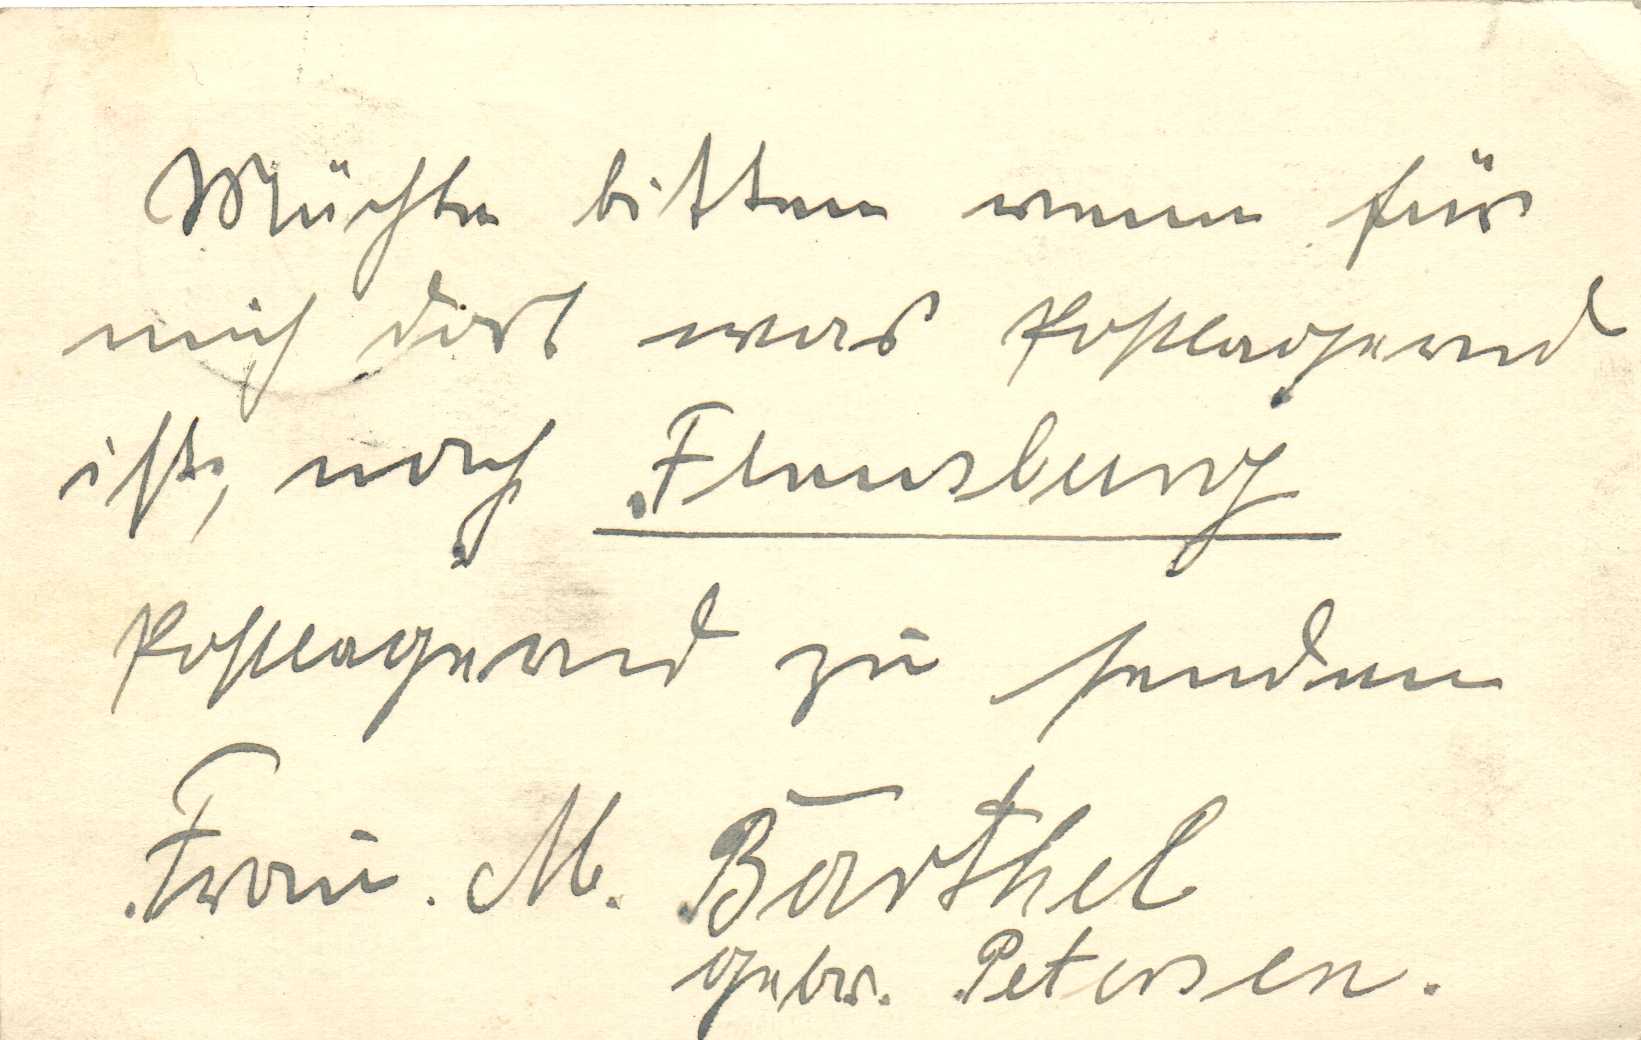 Möchte bitten wenn für
mich dort was Postlagernd
ist, nach Flensburg
Postlagernd zu senden
Frau. M. Barthel
gebr. Petersen.